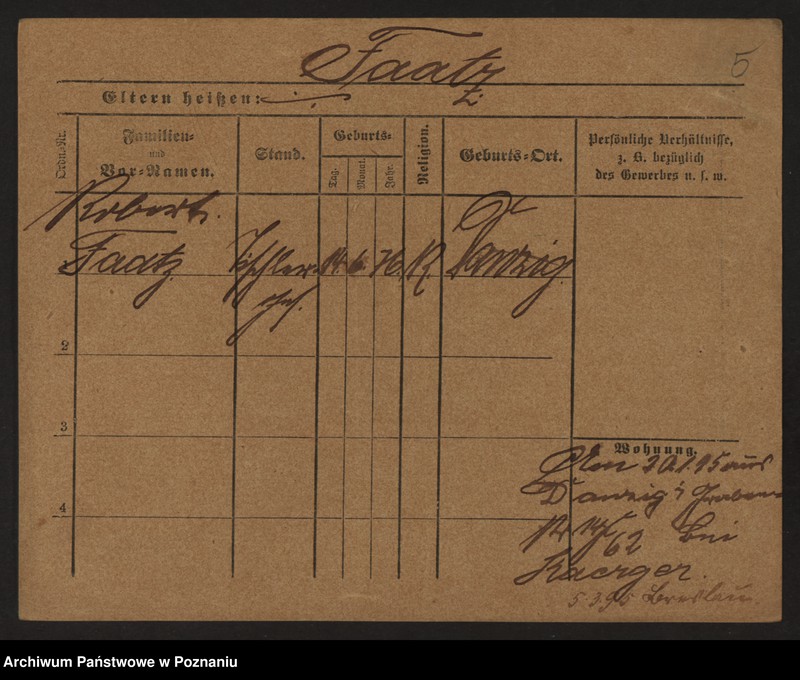 Faatz
5
Eltern heißen:
Ordn.-Nr.
Familien-
und
Vor-Namen.
Stand.
Geburts-
Tag.
Monat.
Jahr.
Religion.
Geburts-Ort.
Persönliche Verhältnisse,
z. B. bezüglich
des Gewerbes u. s. w.
Robert
Faatz Tischler 14. 6. 76. K. Danzig.
2
3
4
Wohnung.
Am 20.1.95 aus
Danzig
62 bei
Kaerger.
5.3.95 Breslau.
Archiwum Państwowe w Poznaniu